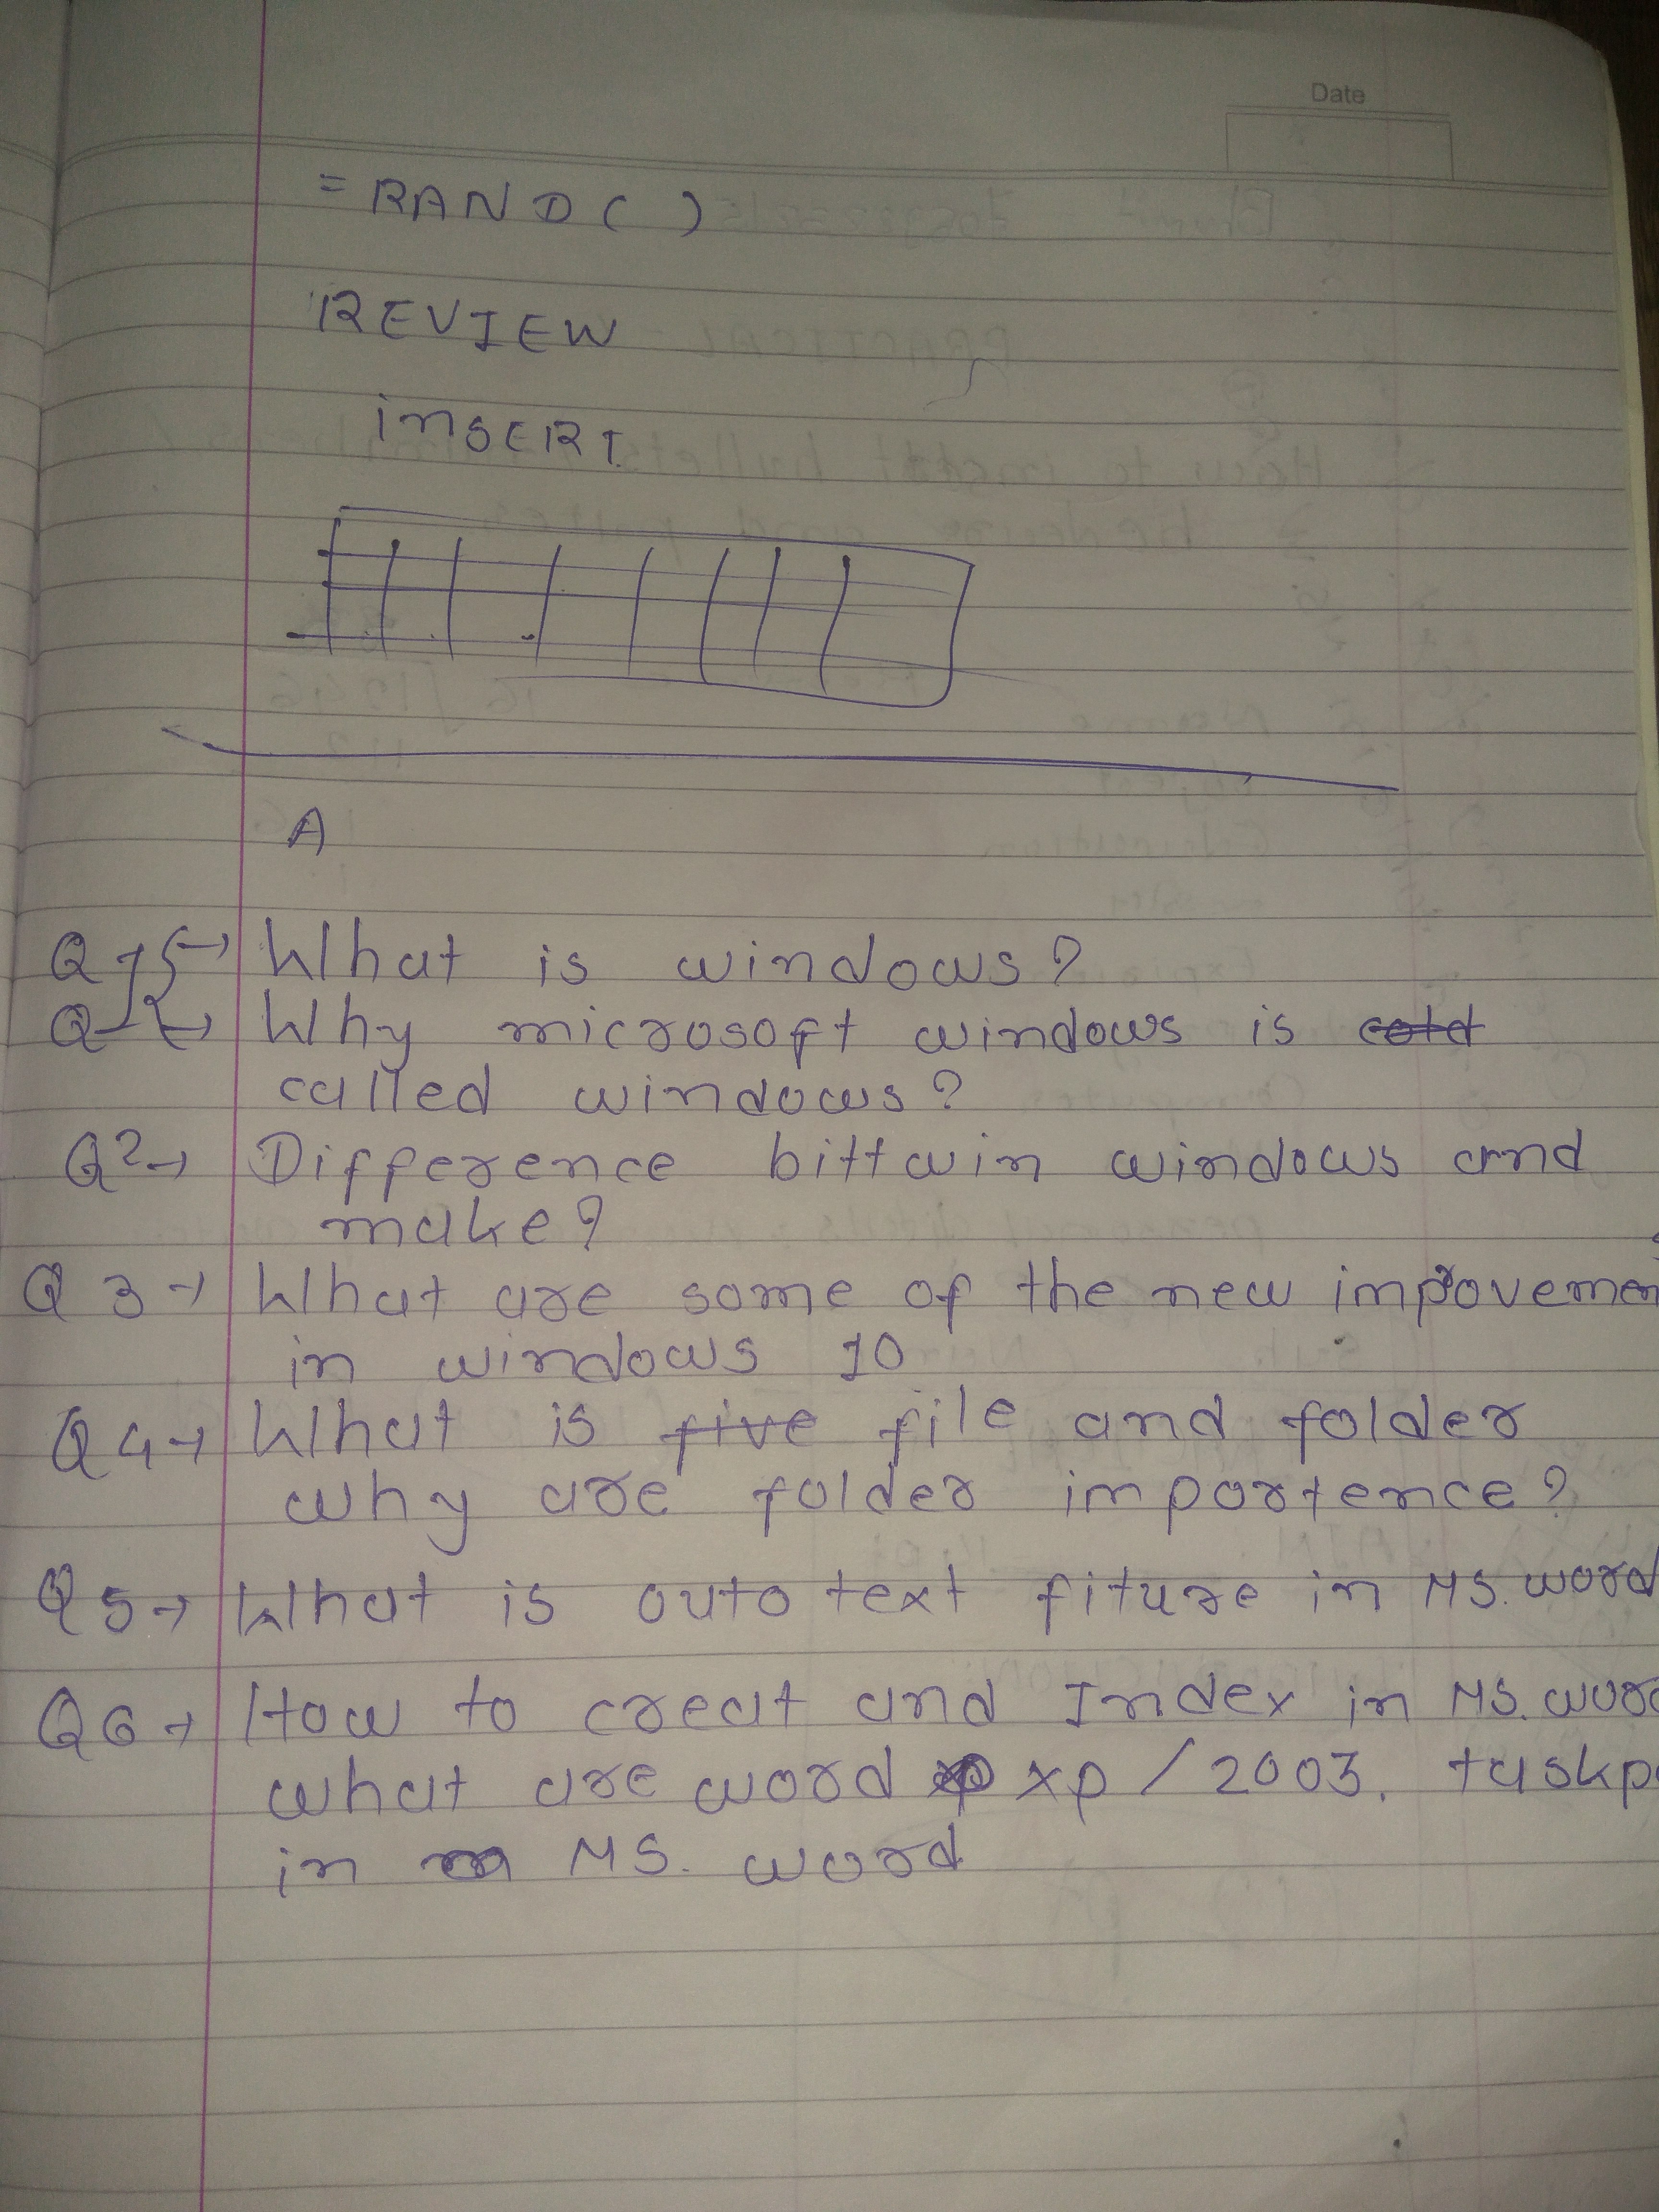 Date
= RAND ( )
REVIEW
insERT
A
Q 1 → What is windows?
Q → Why microsoft windows is
called windows?
Q2→ Difference bittwin windows and
make?
Q 3→ What are some of the new impovemen
in windows 10
Q 4→ What is five file and folder
why are folder importence?
Q 5→ What is outo text fiture in MS. word
Q6→ How to creat and Index in MS. wor
what are word xp / 2003. taskp
in MS. word